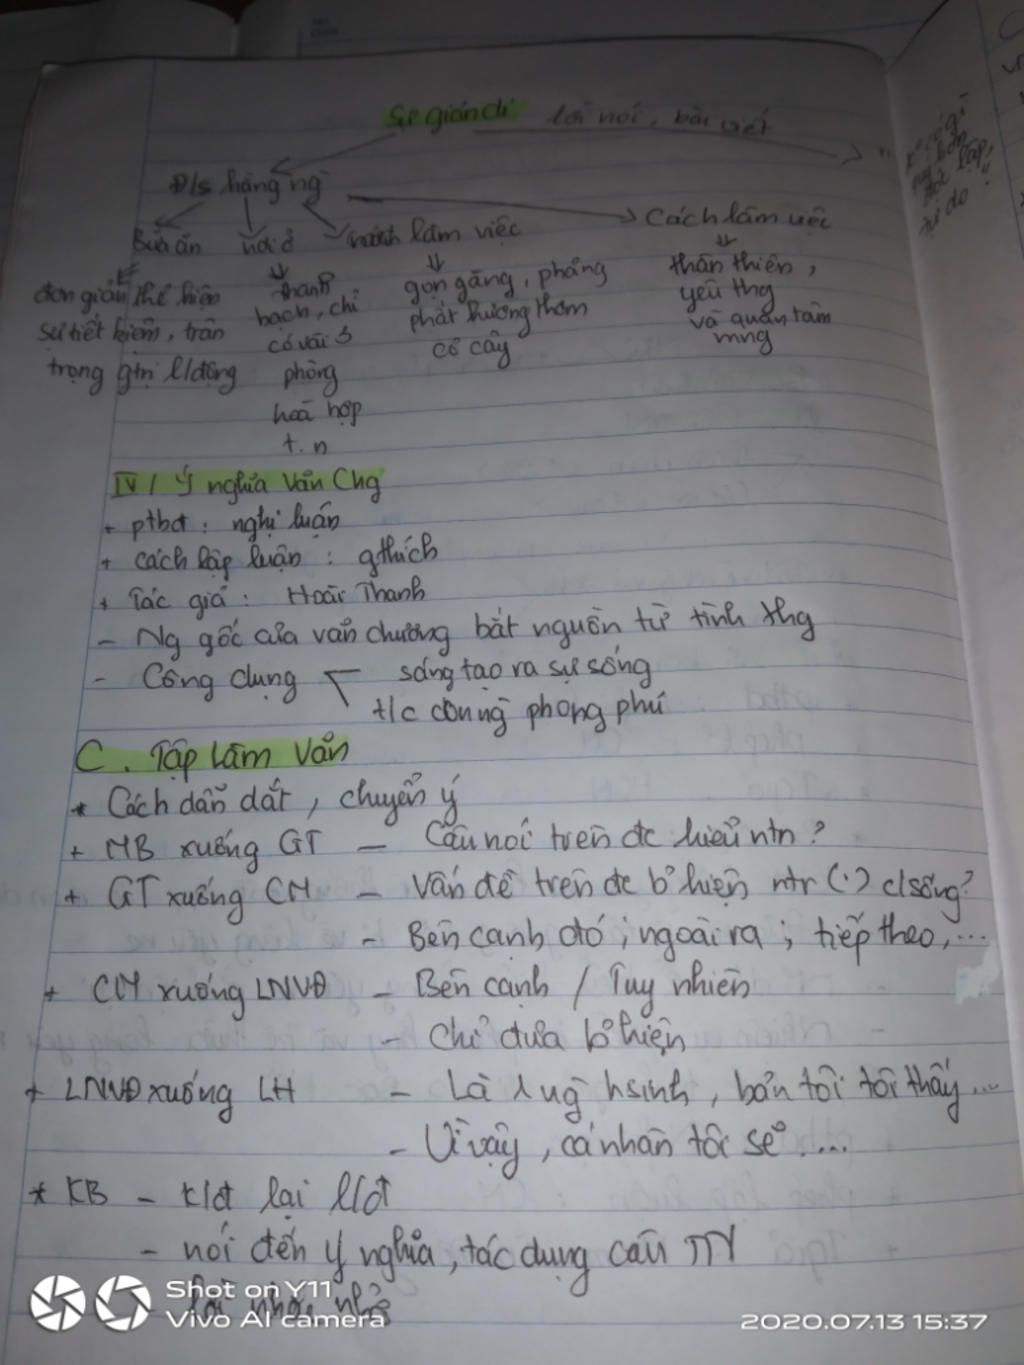 Sự giản dị lời nói, bài viết
Đ/s hàng ng
Bữa ăn nơi ở cách làm việc Cách làm việc
đơn giản thể hiện
sự tiết kiệm, trân
trọng gtrị l/động
thanh
bạch, chỉ
có vài 3
phòng
hoà hợp
t. n
gọn gàng, phảng
phát hương thơm
cỏ cây
thân thiện,
yêu thg
và quan tâm
mng
IV / Ý nghĩa Văn Chg
+ ptbđ : nghị luận
+ cách lập luận : gthích
+ Tác giả : Hoài Thanh
- Ng gốc của văn chương bắt nguồn từ tình thg
- Công dụng sáng tạo ra sự sống
t/c con ng phong phú
C. Tập làm văn
* Cách dẫn dắt, chuyển ý
+ MB xuống GT - Câu nói trên đc hiểu ntn ?
+ GT xuống CM - Vấn đề trên đc b' hiện ntn (.) c/sống?
- Bên cạnh đó ; ngoài ra ; tiếp theo,...
+ CM xuống LNVĐ - Bên cạnh / Tuy nhiên
- Chỉ đưa b' hiện
+ LNVĐ xuống LH - Là 1 ng hsinh, bản tôi tôi thấy ...
- Vì vậy, cá nhân tôi sẽ ....
* KB - k/đt lại l/đt
- nói đến ý nghĩa, tác dụng câu TN
- lời nhắn nhủ
Shot on Y11
Vivo AI camera
2020.07.13 15:37